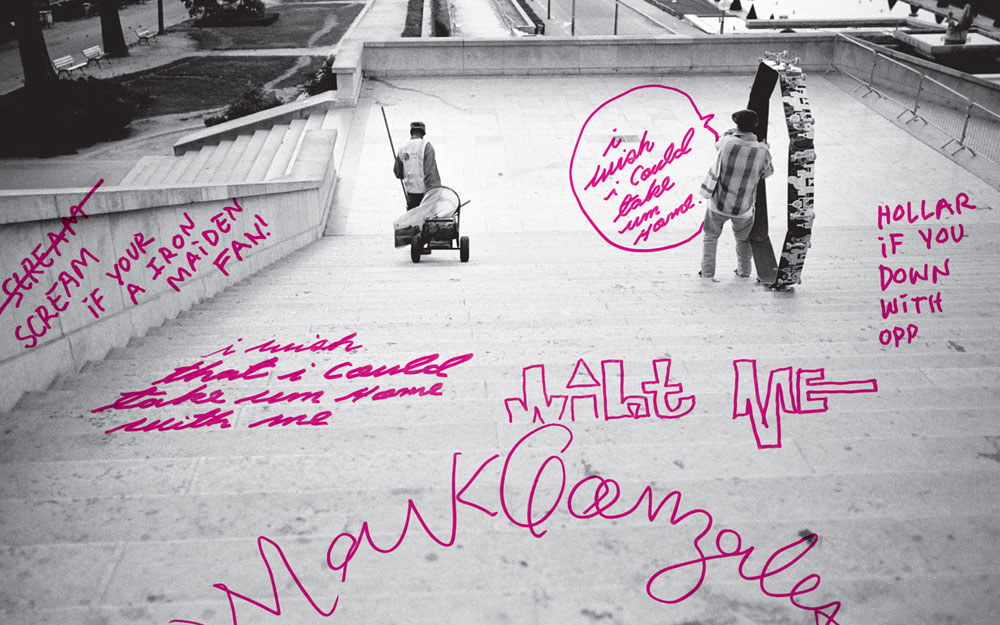 i
wish
i could
take
um
Home.
SCREAM
SCREAM
iF YOUR
A IRON
MAiDEN
FAN!
HOLLAR
iF YOU
DOWN
WiTH
OPP
i wish
that i could
take um Home
with me
ME
Mark Gonzales